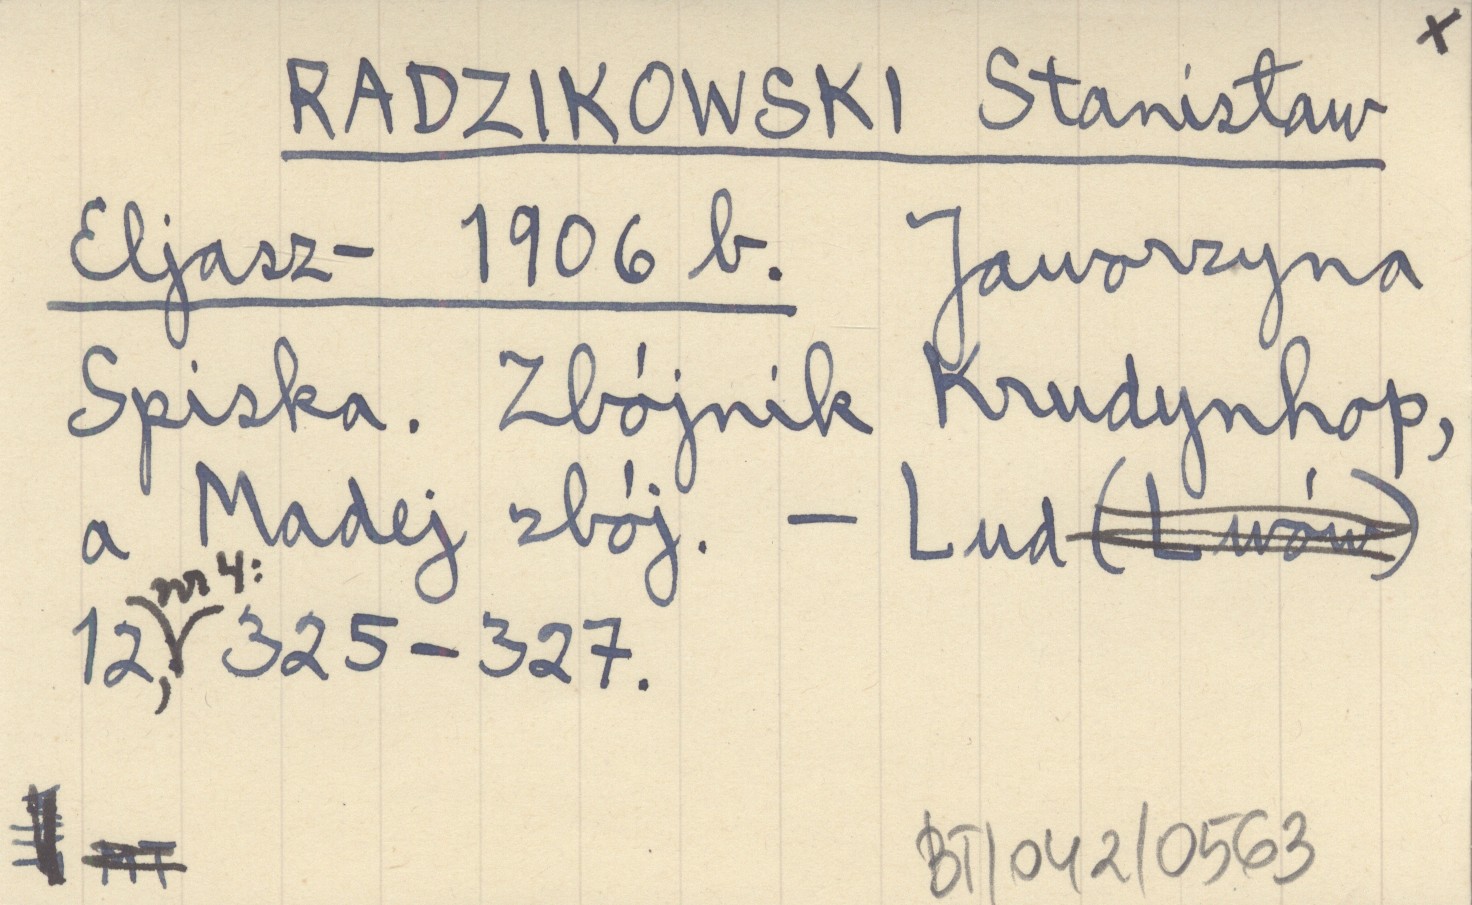 x
RADZIKOWSKI Stanisław
Eljasz- 1906 b. Jaworzyna
Spiska. Zbójnik Krudynhop,
a Madej zbój. – Lud (Lwów)
nr 4:
12, 325–327.
MT
BT/042/0563